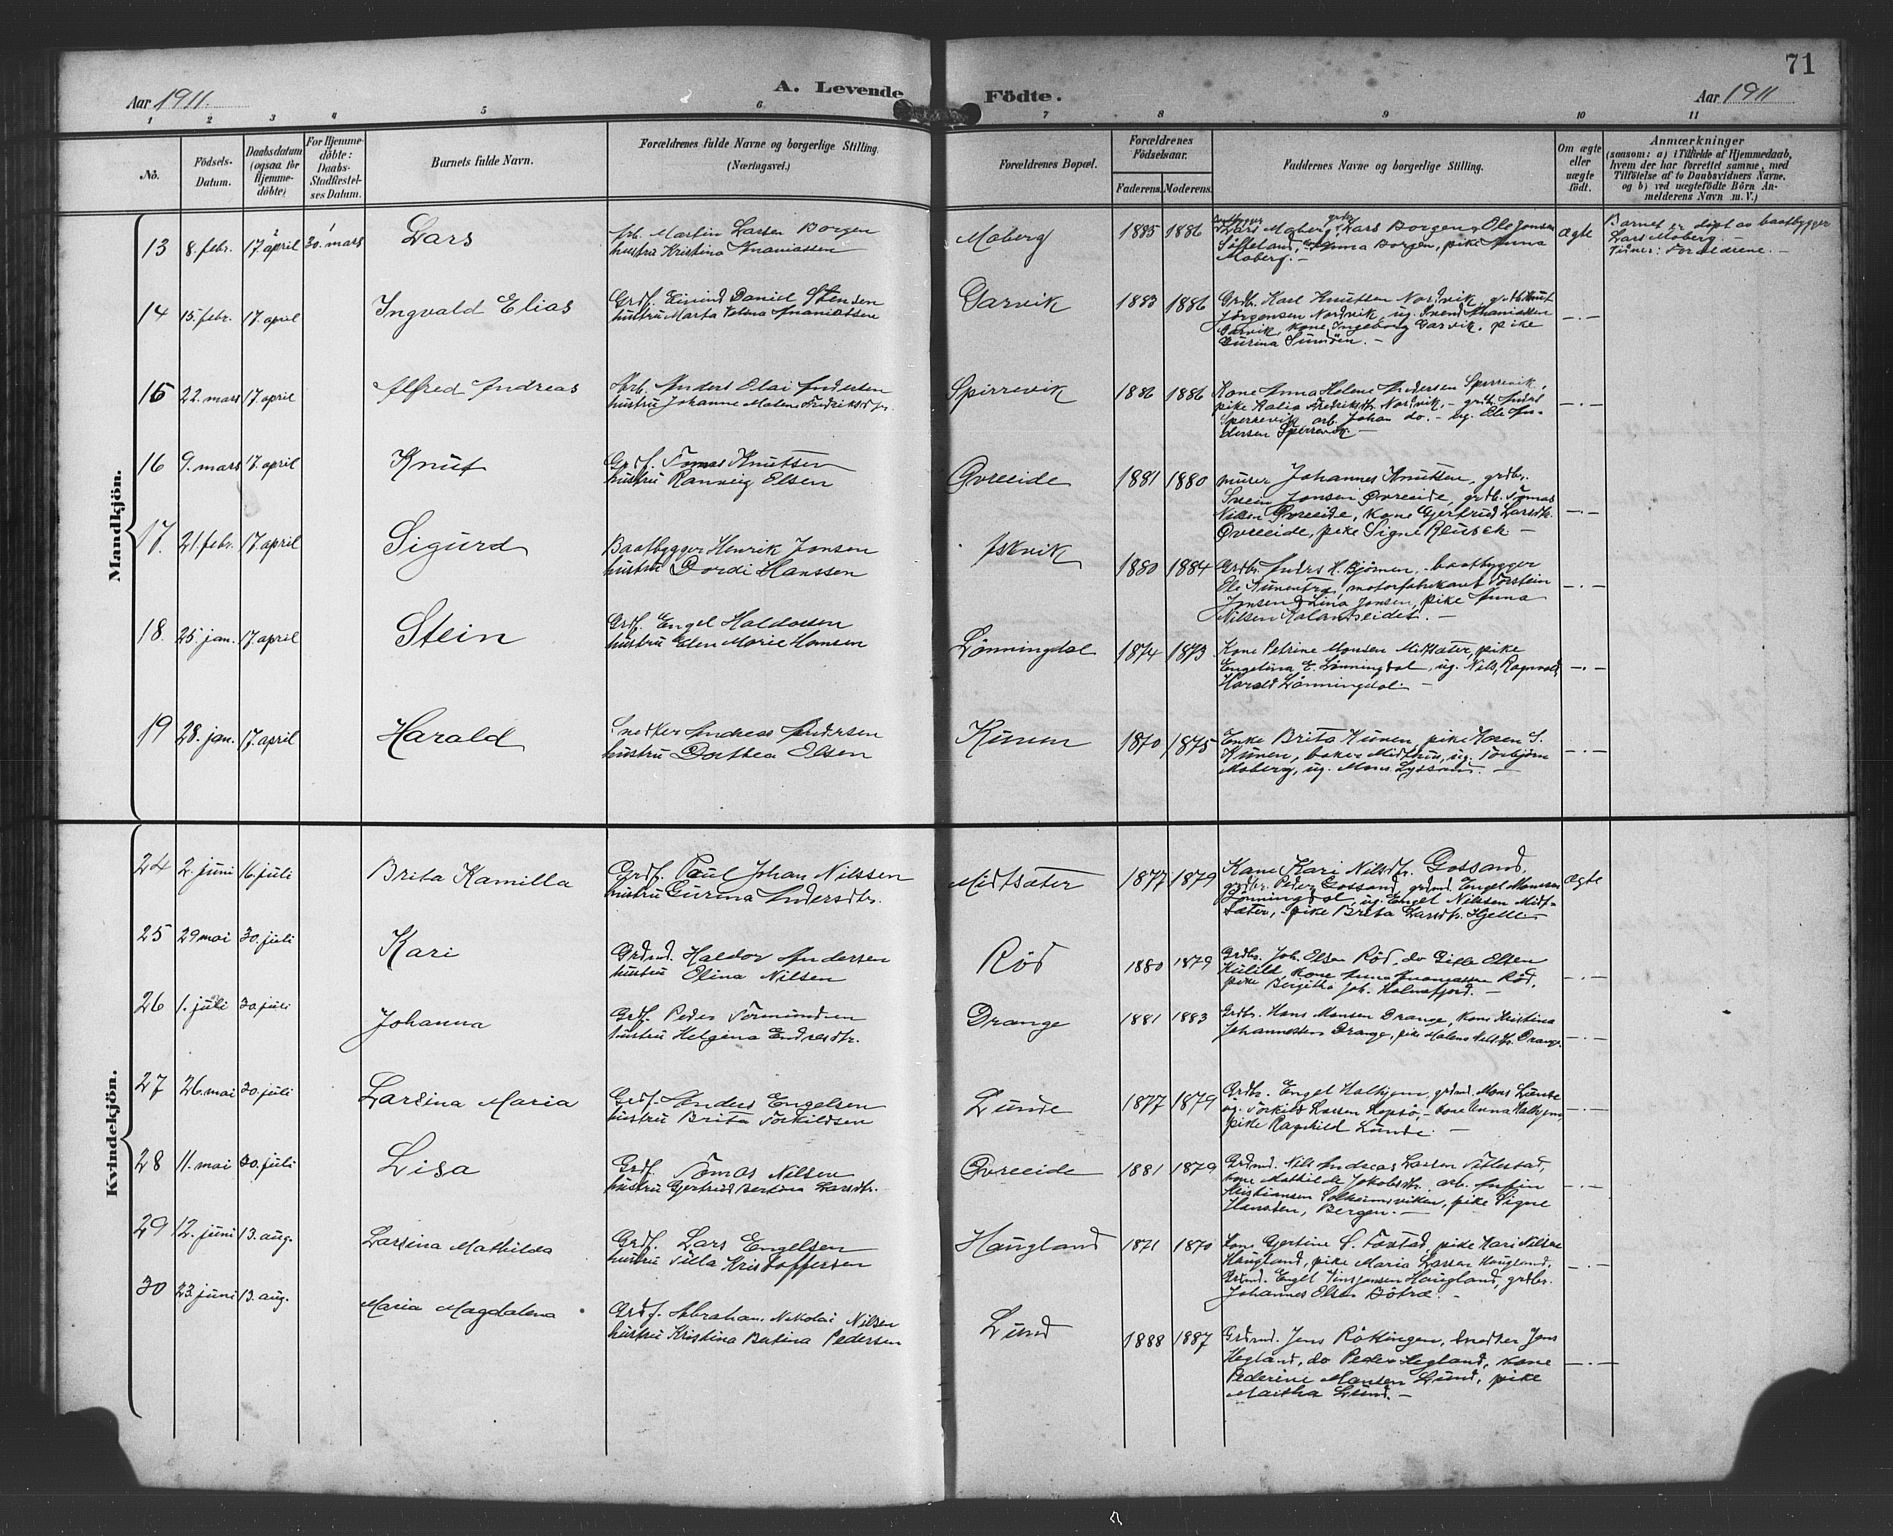 71
Aar 1911. A. Levende Födte. Aar 1911
1 2 3 4 5 6 7 8 9 10 11
No.
Födsels-
Datum.
Daabsdatum
(ogsaa for
Hjemme-
döbte)
For Hjemme-
döbte:
Daabs-
Stadfæstel-
ses Datum.
Barnets fulde Navn.
Forældrenes fulde Navne og borgerlige Stilling.
(Næringsvei.)
Forældrenes Bopæl.
Forældrenes
Födselsaar.
Faderens. Moderens.
Faddernes Navne og borgerlige Stilling.
Om ægte
eller
uægte
født.
Anmærkninger
(saasom: a) i Tilfælde af Hjemmedaab,
hvem der har forrettet samme, med
Tilföielse af to Daabsvidners Navne,
og b) ved uægtefödte Börn An-
melderens Navn m. V.)
Mandkjön.
13 8. febr. 17. april 30. mars Lars
Arb. Martin Larsen Borgen
hustru Kristina Ananiassen
Moberg 1885 1886
Lars Moberg, Lars Borgen, Ole Jonsen
Söfteland, Anna Borgen, pike Anna
Moberg. –
ægte
Barnet er døpt av baatbygger
Lars Moberg. –
Vidner: Forældrene. –
14 15. febr. 17. april Ingvald Elias
Grdf. Eivind Daniel Stensen
hustru Marta Ananiassen
Garvik 1883 1886
Grdb. Karl Knutsen Nordvik, grdb. Knut
Jörgensen Nordvik, ug. Svend Ananiassen
Garvik, kone Ingeborg Garvik, pike
Gurina Sundöen. –
– . –
15 22. mars 17. april Alfred Andreas
Arb. Anders Olai Andersen
hustru Johanne Malene Fredriksdtr.
Spirrevik 1886 1886
Kone Anna Helene Andersen Sperrevik,
pike Fredriksdtr. Nordvik, – grdb. Anders
Sperrevik, arb. Johan do. – ug. Ole An-
dersen Sperrevik. –
– . –
16 9. mars 17. april Knut
Grdf. Tomas Knutsen
hustru Ranveig Olsen
Øvreeide 1881 1880
murer Johannes Knutsen, grdbr.
Svein Jonsen Øvreeide, grdb. Tomas
Nilsen Øvreeide, kone Gjertrud Larsdtr.
Øvreeide, pike Signe –
– . –
17. 21. febr. 17. april Sigurd
Baatbygger Henrik Jonsen
hustru Dordi Hanssen
1880 1884
Grdbr. Anders H. Björnen, baatbygger
Ole motorfabrikant Torstein
Jonsen, Lina Jonsen, pike Anna
Nilsen Kalandseidet. –
– . –
18. 25. jan. 17. april Stein
Grdf. Engel Haldorsen
hustru Elen Marie Hansen
Lönningdal 1874 1873
Kone Petrine Monsen Midtsæter, pike
Engelina E. Lönningdal, ug. Nils, Ragnvald,
Harald Lönningdal. –
– . –
19 28. jan. 17. april Harald
Snedker Andreas Andersen
hustru Dorthea Olsen
Kuven 1870 1875
Enke Brita Kuven, pike S.
Kuven, baker Midthus, ug. Torbjörn
Moberg, ug. Mons –
– . –
Kvindekjön.
24 2. juni 16. juli Brita Kamilla
Grdf. Paul Johan Nilssen
hustru Gurina Andersdtr.
Midtsæter 1877 1879
Kone Kari Nilsdtr. Gossand,
grdbr. Peder Gossand, grdmd. Engel Monssen
Lönningdal, ug. Engel Nilssen Midt-
sæter, pike Brita Larsdtr. Hjelle –
ægte
25 29 mai 30. juli Kari
Grdmd. Haldor Andersen
hustru Elina Nilsen
Röd 1880 1879
Grdbr. Joh. Olsen Röd, do Olsen
kone Anna Ananiassen Röd,
pike Bergitha Joh. Holmefjord. –
– . –
26 1. juli 30. juli Johanna
Grdf. Peder Tormundsen
hustru Helgina Endresdtr.
Drange 1881 1883
Grdbr. Hans Monsen Drange, kone Kristina
Johannesen Drange, pike Malena Nilsdtr. Drange.
– . –
27 26. mai 30. juli Larsina Maria
Grdf. Anders Engelsen
hustru Brita Torkildsen
Lunde 1877 1879
Grdbr. Engel Halhjem, grdmd. Mons Lunde
ug. Torkild Larsen kone Anna Halhjem,
pike Ragnhild Lunde. –
– . –
28 11. mai 30. juli Lisa
Grdf. Tomas Nilsen
hustru Gjertrud Bertina Larsdtr.
Øvreeide 1881 1879
Grdmd. Nils Andreas Larsen Titlestad,
kone Mathilde Jakobsdtr. arb.
Kristiansen Solheimsviken, pike Signe
Hansten, Bergen. –
– . –
29 12. juni 13. aug. Larsina Mathilda
Grdf. Lars Engelsen
hustru Silla Kristoffersen
Haugland 1871 1870
Kone Gjertine S. pike Kari Nilsen
Haugland, pike Maria Larsen Haugland,
Grdmd. Engel Haugland, grdbr.
Johannes Olsen –
– . –
30 23. juni 13. aug. Maria Magdalena
Grdf. Abraham Nikolai Nilsen
hustru Kristina Bertina Pedersen
Lund 1888 1887
Grdmd. Jens Röttingen, snedker Jens
Hegland, do Peder Hegland, kone
Pederine Monsen Lund, pike
Lund. –
– . –